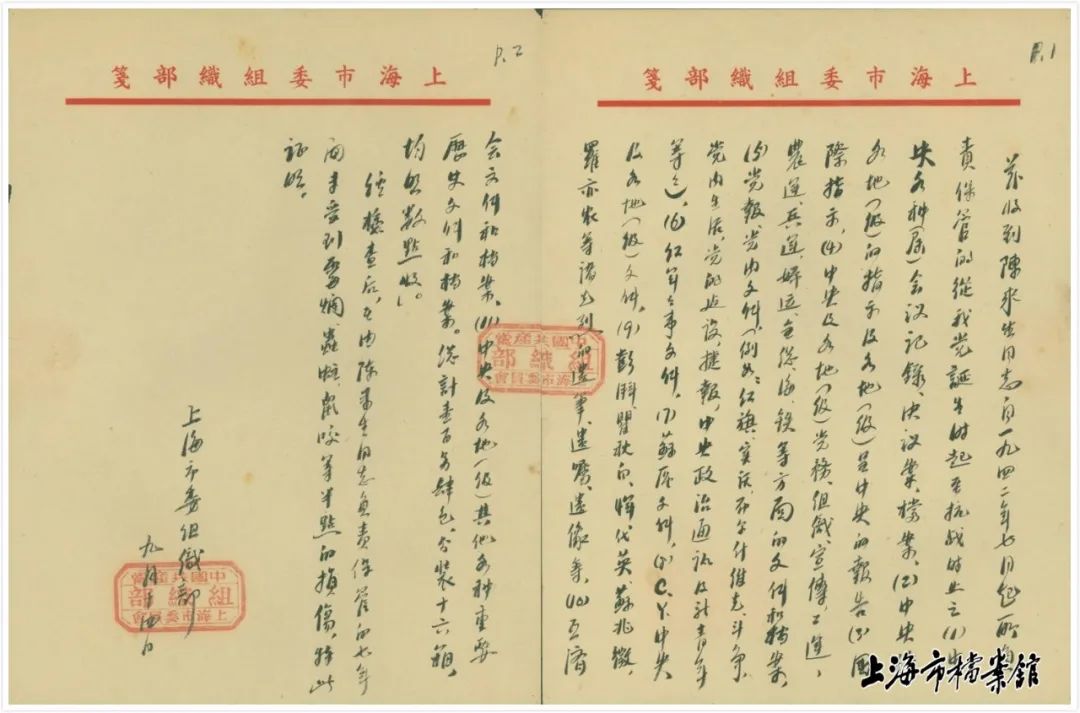 P.1
上海市委組織部箋
兹收到陳來生同志自一九四二年七月起所負
責保管的從我党誕生時起至抗战時止之(1)中
央各种(届)会议记錄、决议案、檔案,(2)中央與
各地(级)的指示及各地(级)呈中央的報告(3)國
際指示,(4)中央及各地(级)党務、组織、宣傳、工運、
農運、兵運、婦运、互总、海、鉄等方面的文件和檔案,
(5)党報、党内文件(例如:红旗、實话、布尔什維克、斗争、
党内生活、党的建设、捷報、中央政治通訊及列青年
等等),(6)红軍軍事文件,(7)蘇区文件,(8)C.Y.中央
及各地(级)文件,(9)彭湃、瞿秋白、恽代英、蘇兆徵、
羅亦农等諸先烈的遺筆、遺囑、遺像等,(10)互濟
P.2
上海市委組織部箋
会文件和檔案,(11)中央及各地(级)其他各种重要
歷史文件和檔案。總計壹百另肆包,分装十六箱,
均照數點收。
经檢查后,在由陳來生同志負責保管的七年
间未受到霉爛、蟲蛀、鼠咬等半點的損傷,特此
证明。
上海市委组織部
九月十四日
中國共產黨
組織部
上海市委員會
中國共產黨
組織部
上海市委員會
上海市檔案館